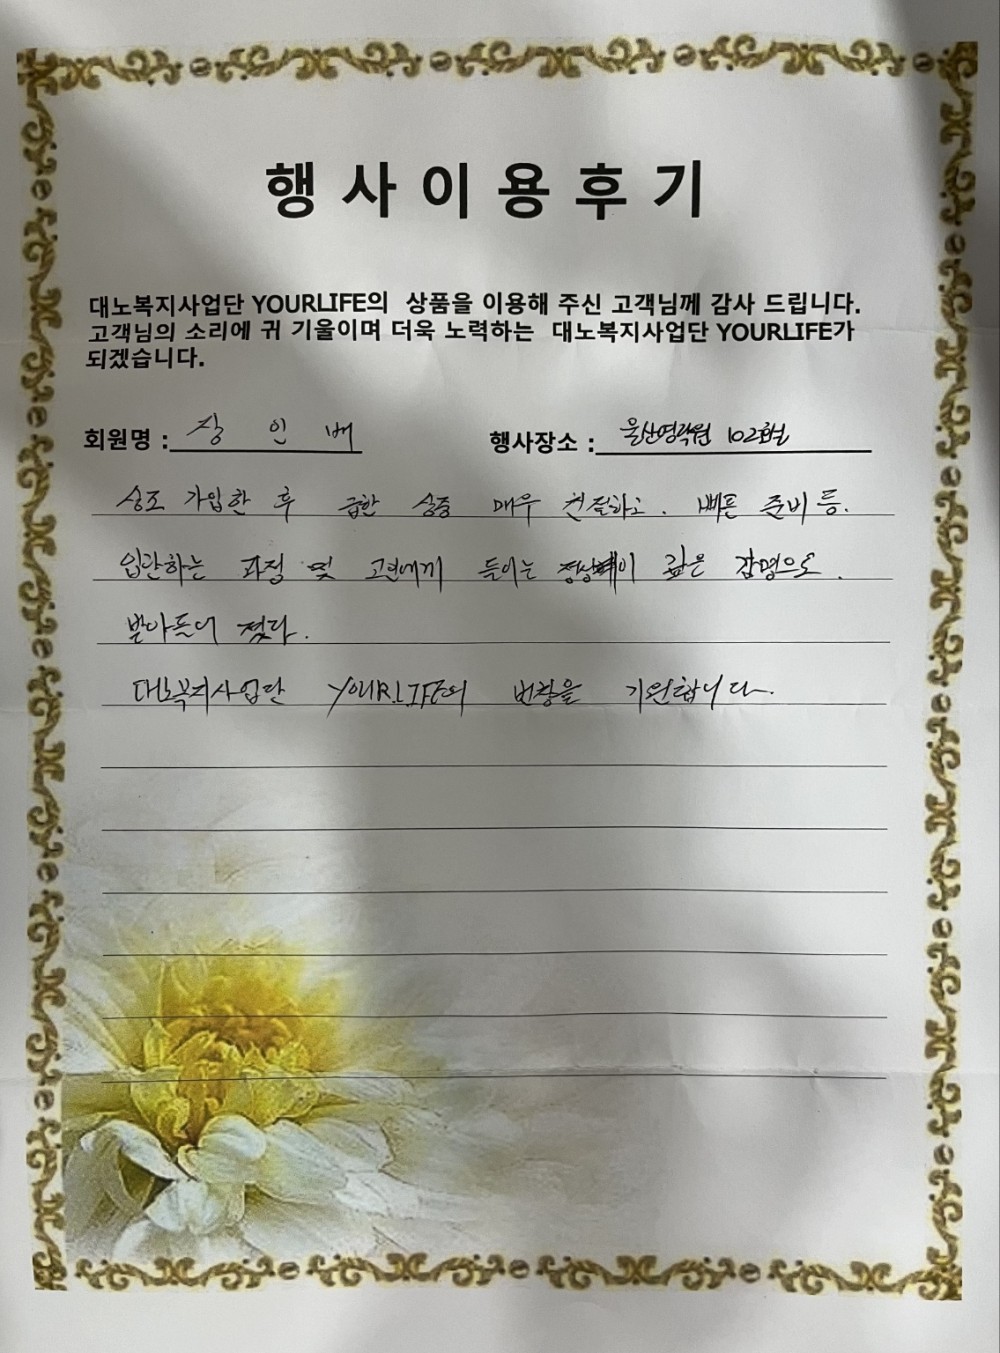 행사이용후기
대노복지사업단 YOURLIFE의 상품을 이용해 주신 고객님께 감사 드립니다.
고객님의 소리에 귀 기울이며 더욱 노력하는 대노복지사업단 YOURLIFE가
되겠습니다.
회원명 : 장 인 배 행사장소 : 울산영락원 102호실
상조 가입한 후 급한 상중 매우 친절하고. 빠른 준비 등.
입관하는 과정 및 고인에게 들이는 깊은 감명으로.
받아들여 졌다.
대노복지사업단 YOURLIFE의 번창을 기원합니다.